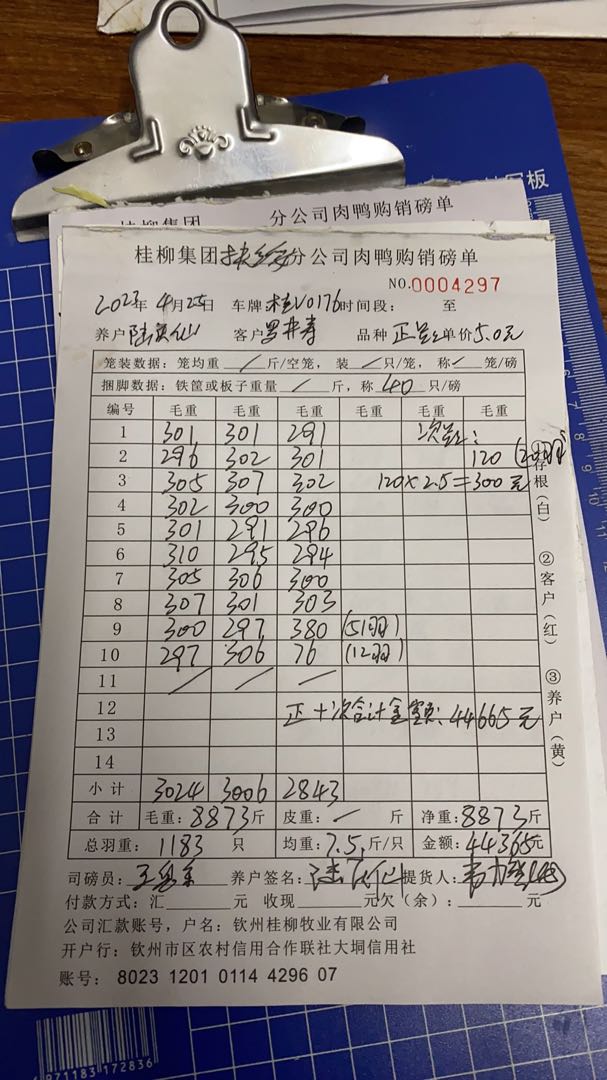 写板
桂柳集团 分公司肉鸭购销磅单
桂柳集团 分公司肉鸭购销磅单
NO.0004297
2023年4月25日 车牌 桂V0176 时间段: 至
养户 客户 罗井寿 品种 正 单价5.0元
笼装数据:笼均重 / 斤/空笼,装 / 只/笼,称 / 笼/磅
捆脚数据:铁筐或板子重量 / 斤,称 40 只/磅
编号 毛重 毛重 毛重 毛重 毛重 毛重
1 301 301 291 次
2 296 302 301 120
3 305 307 302 120×2.5=300元
4 302 300 300
5 301 291 296
6 310 295 294
7 305 306 300
8 307 301 303
9 300 297 380 (51羽)
10 297 306 76 (12羽)
11 / / /
12 正+次合计金额:44665元
13
14
小计 3024 3006 2843
合计 毛重:8873斤 皮重: / 斤 净重:8873斤
总羽重: 1183 只 均重:7.5斤/只 金额:44365元
①存根(白)
②客户(红)
③养户(黄)
司磅员: 养户签名: 提货人:
付款方式:汇 元 收现 元欠(余): 元
公司汇款账号,户名:钦州桂柳牧业有限公司
开户行:钦州市区农村信用合作联社大垌信用社
账号:8023 1201 0114 4296 07
971183 172836